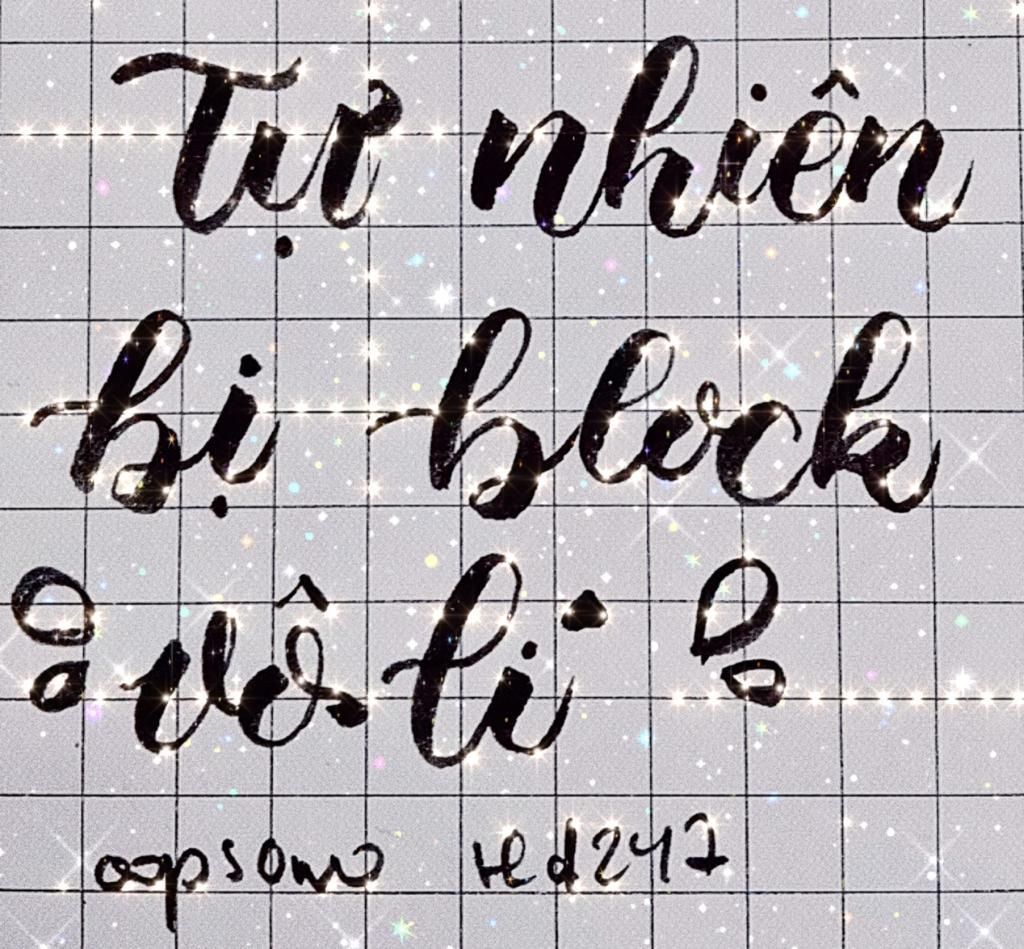 Tự nhiên
bị block
? vô lí ?
oopsomo red247